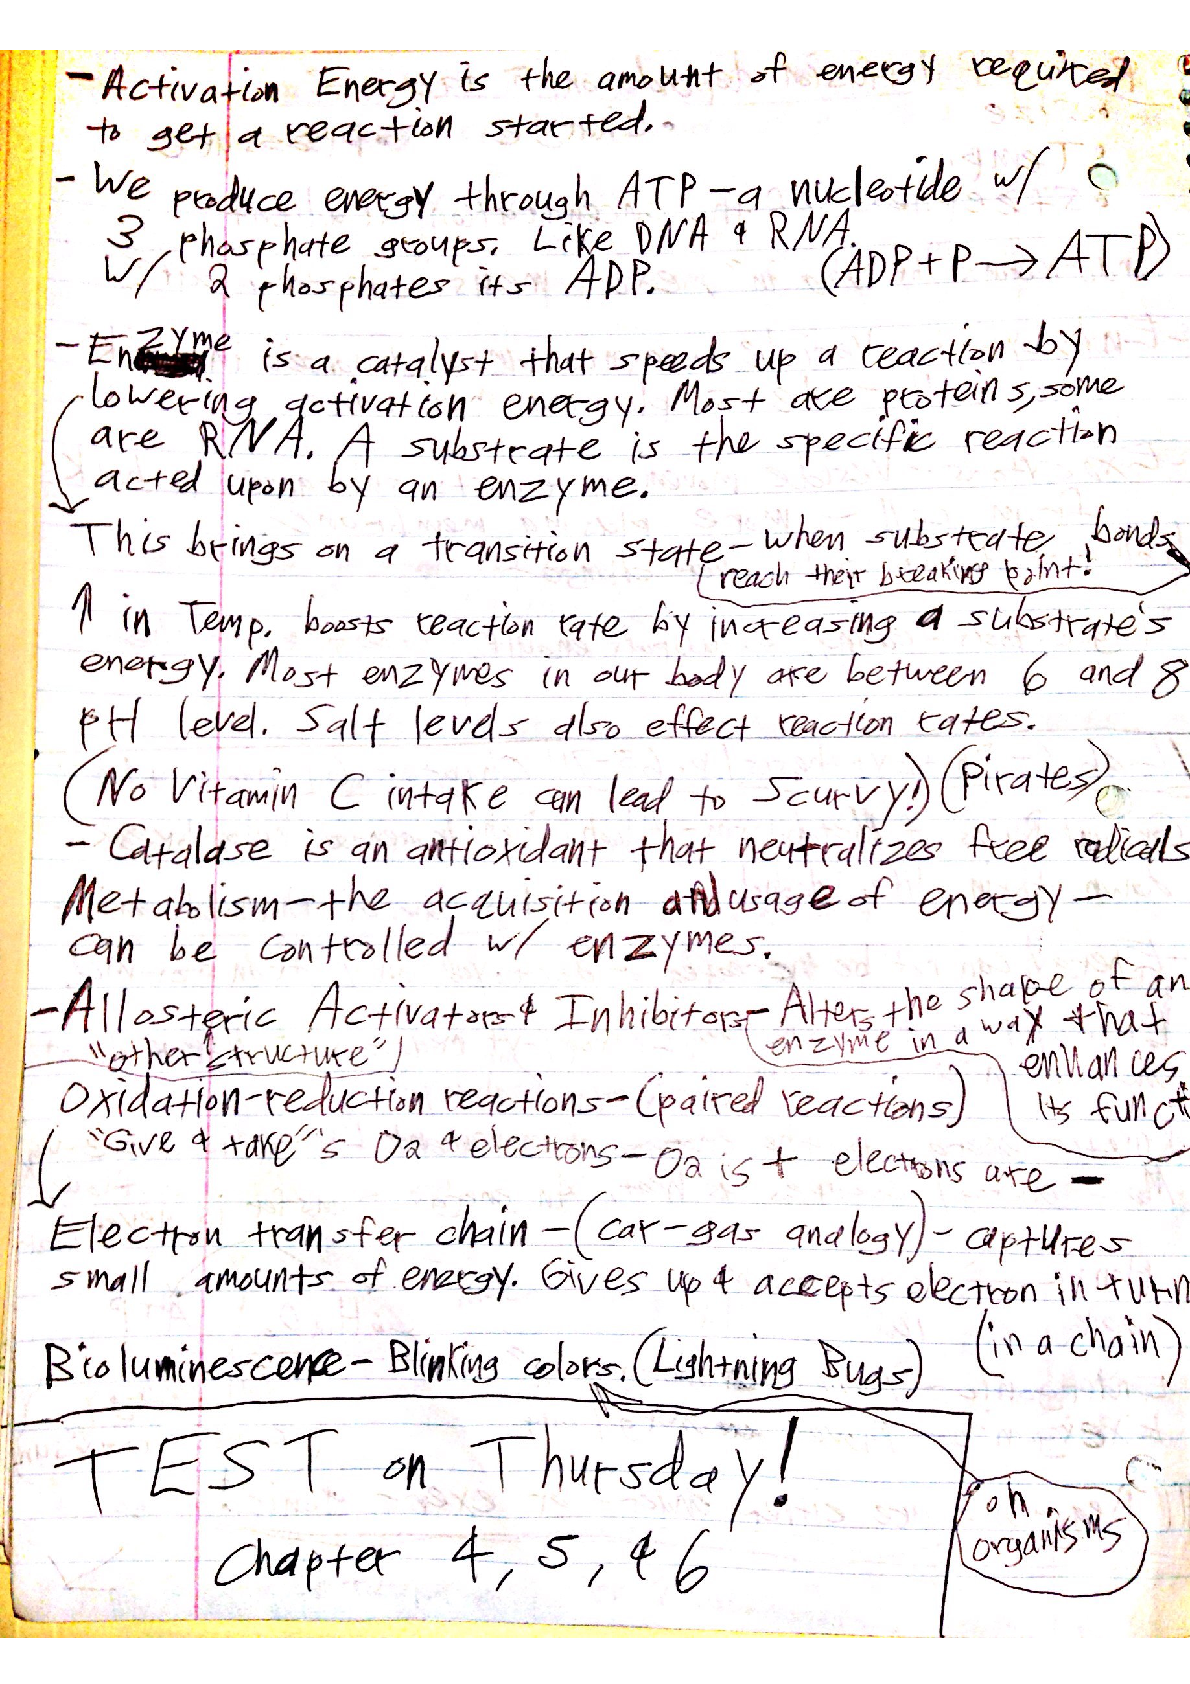 - Activation Energy is the amount of energy required
to get a reaction started.
- We produce energy through ATP - a nucleotide w/
3 phosphate groups. Like DNA & RNA.
w/ 2 phosphates its ADP. (ADP + P → ATP)
- Enzyme is a catalyst that speeds up a reaction by
lowering activation energy. Most are proteins, some
are RNA. A substrate is the specific reaction
acted upon by an enzyme.
This brings on a transition state - when substrate bonds
reach their breaking point!
↑ in Temp. boosts reaction rate by increasing a substrate's
energy. Most enzymes in our body are between 6 and 8
pH level. Salt levels also effect reaction rates.
(No Vitamin C intake can lead to Scurvy!) (Pirates)
- Catalase is an antioxidant that neutralizes free radicals
Metabolism - the acquisition and usage of energy -
can be controlled w/ enzymes.
- Allosteric Activators & Inhibitors - Alters the shape of an
"other structure" enzyme in a way that
enhances
its funct
Oxidation-reduction reactions - (paired reactions)
"Give & take"'s O2 & electrons - O2 is + electrons are -
Electron transfer chain - (car-gas analogy) - captures
small amounts of energy. Gives up & accepts electron in turn
(in a chain)
Bioluminescence - Blinking colors. (Lightning Bugs)
TEST on Thursday!
on
organisms
Chapter 4, 5, & 6